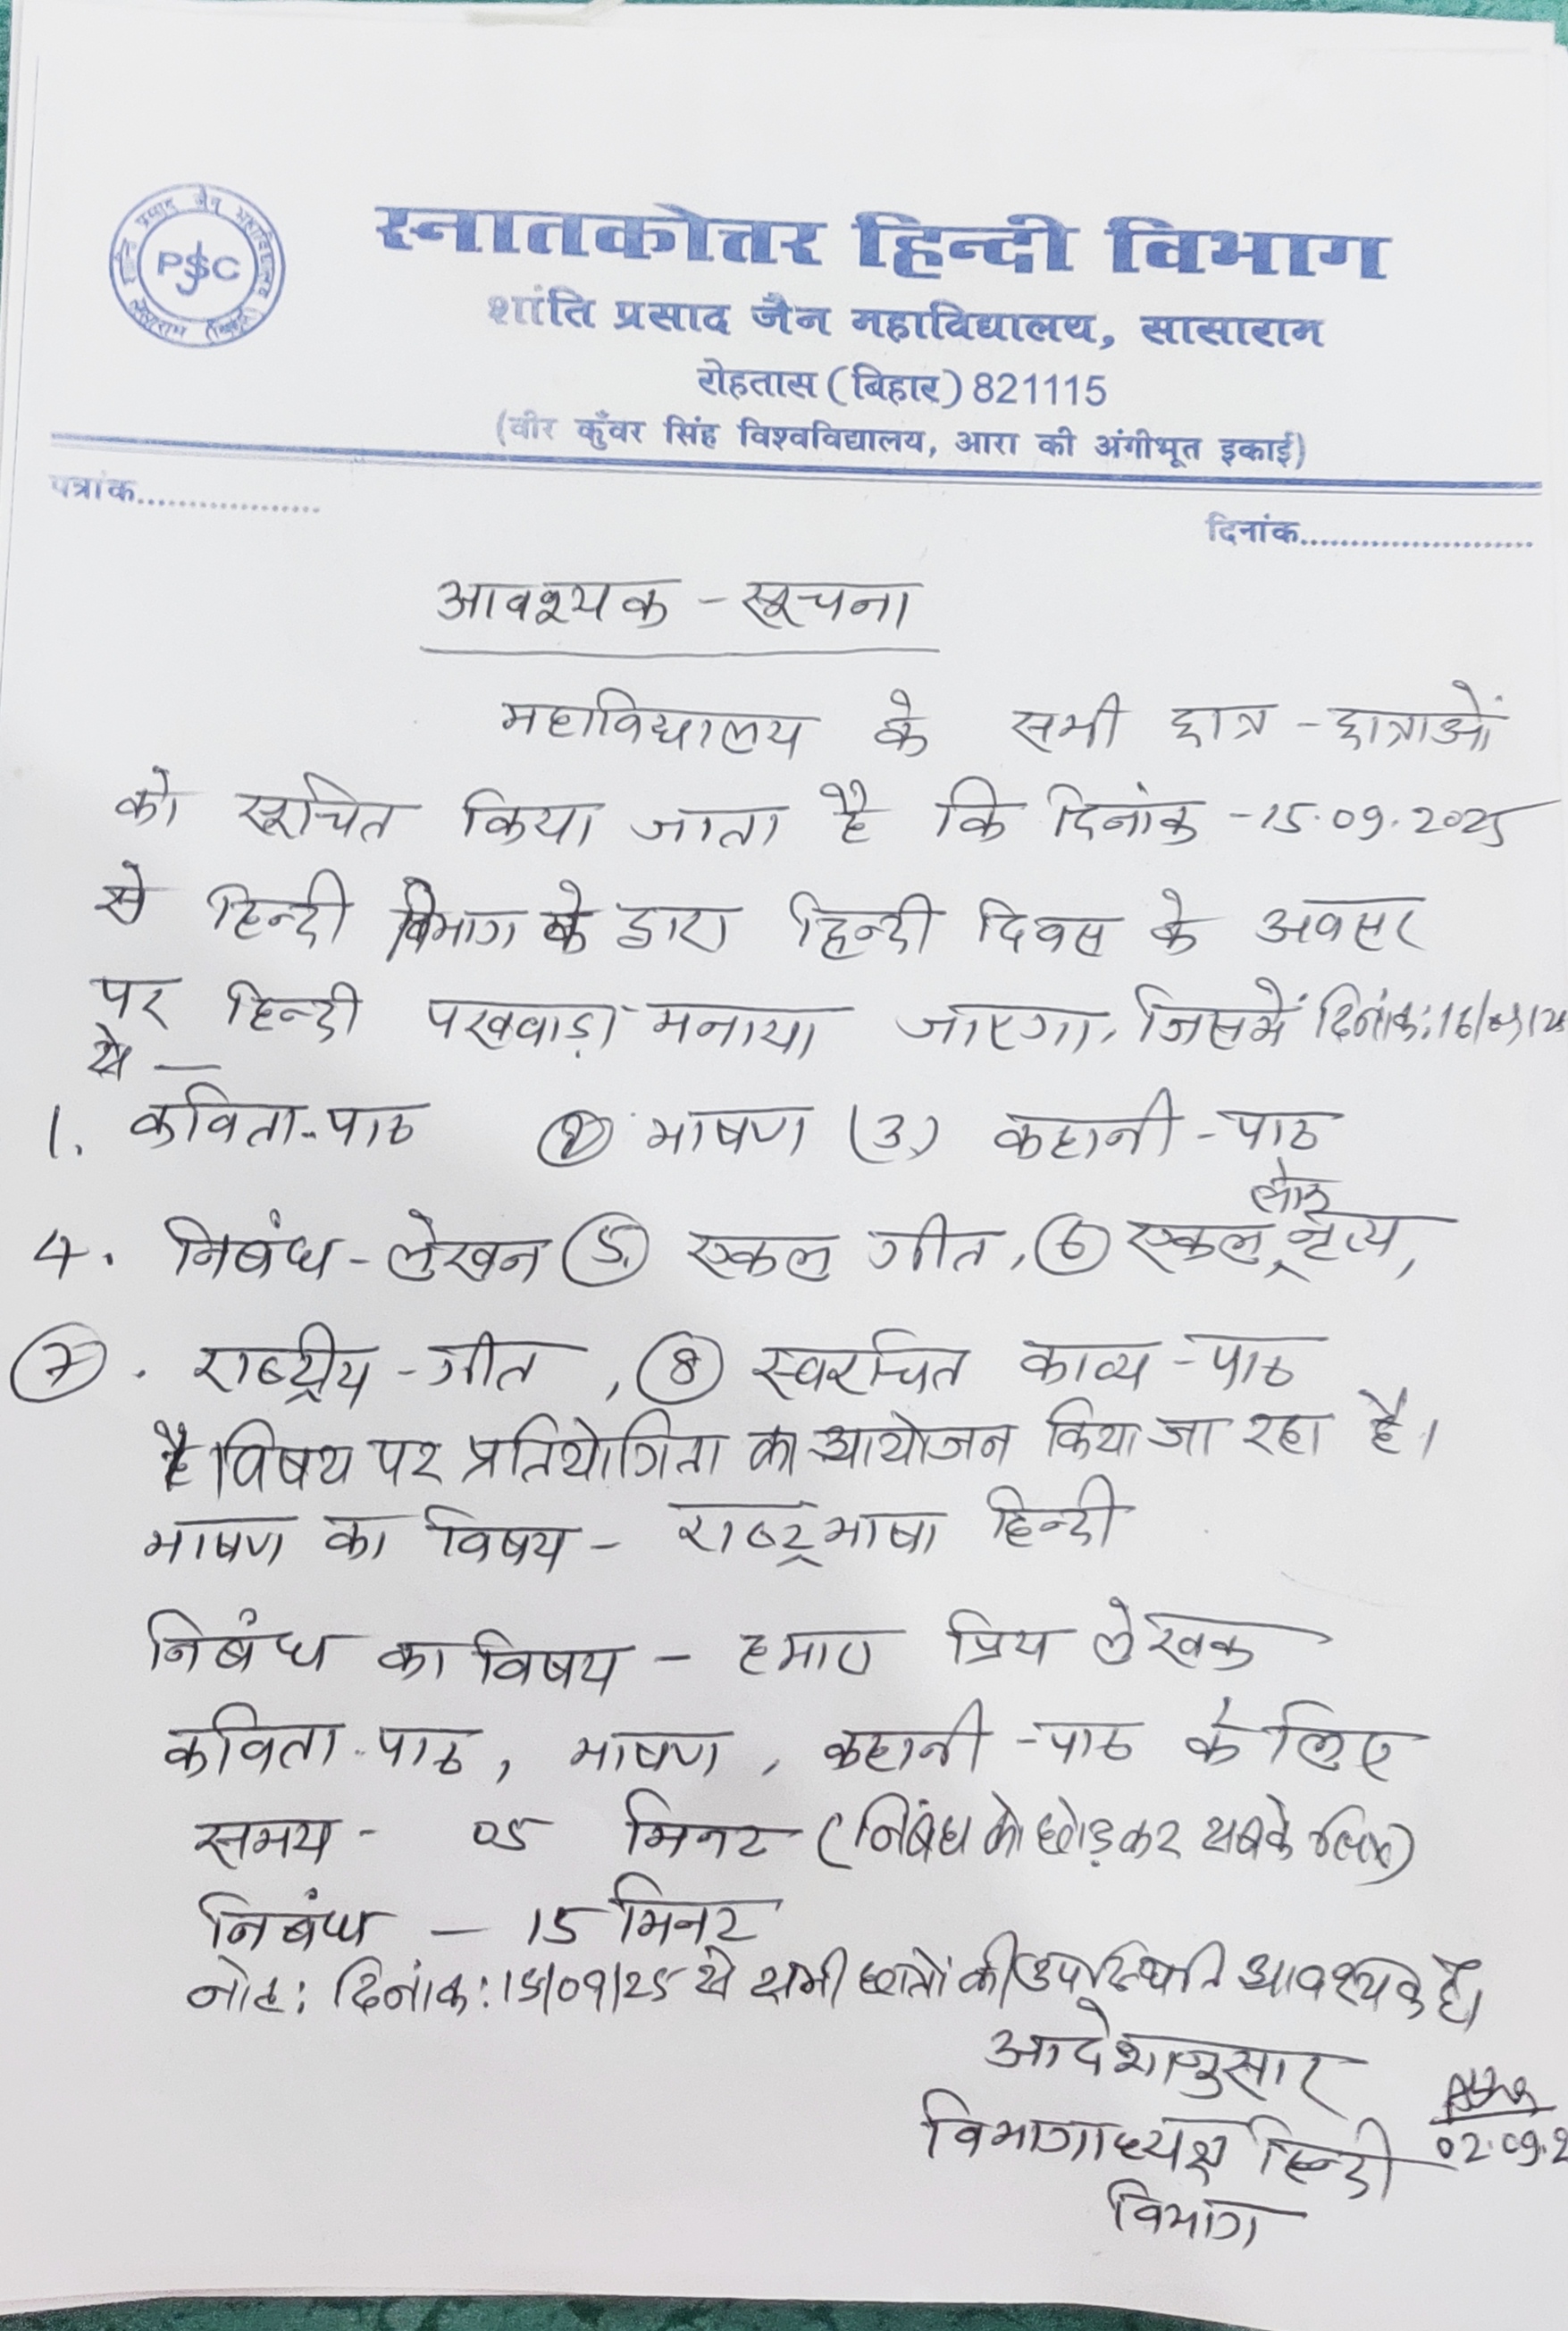 PSJC
स्नातकोत्तर हिन्दी विभाग
शांति प्रसाद जैन महाविद्यालय, सासाराम
रोहतास (बिहार) 821115
(वीर कुँवर सिंह विश्वविद्यालय, आरा की अंगीभूत इकाई)
पत्रांक....................
दिनांक........................
आवश्यक - सूचना
महाविद्यालय के सभी छात्र - छात्राओं
को सूचित किया जाता है कि दिनांक -15.09.2025
से हिन्दी विभाग के द्वारा हिन्दी दिवस के अवसर
पर हिन्दी पखवाड़ा मनाया जाएगा, जिसमें दिनांक: 16/09/25
से —
1. कविता-पाठ (2) भाषण (3) कहानी - पाठ
4. निबंध - लेखन (5) एकल गीत, (6) एकल लोक नृत्य,
(7). राष्ट्रीय - गीत, (8) स्वरचित काव्य - पाठ
विषय पर प्रतियोगिता का आयोजन किया जा रहा है।
भाषण का विषय - राष्ट्रभाषा हिन्दी
निबंध का विषय - हमारा प्रिय लेखक
कविता-पाठ, भाषण, कहानी - पाठ के लिए
समय - 05 मिनट (निबंध को छोड़कर सबके लिए)
निबंध - 15 मिनट
नोट: दिनांक: 15/09/25 से सभी छात्रों की उपस्थिति आवश्यक है।
आदेशानुसार
विभागाध्यक्ष हिन्दी 02.09.2
विभाग